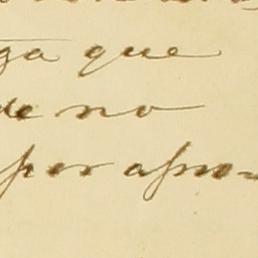 ga que
de no
por apro-